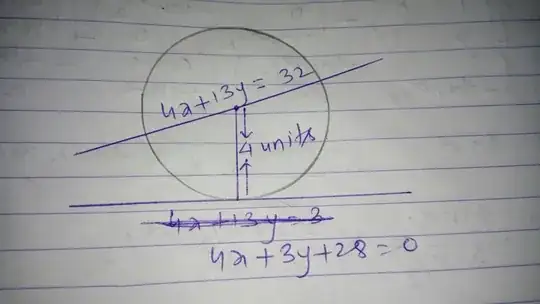 4x+13y = 32
4 units
4x+13y=3
4x+3y+28=0